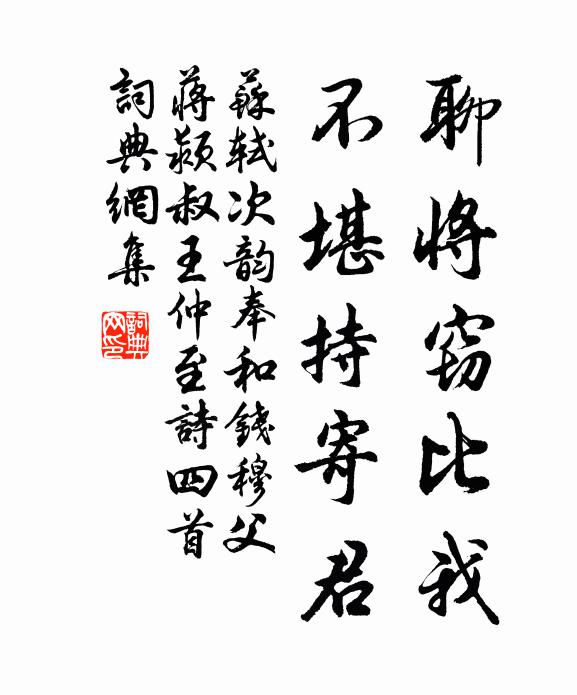 聊將窈比我
不堪持寄君
蘇軾次韵奉和錢穆父
蔣颍叔王仲至詩四首
詞典網集
詞典
网印